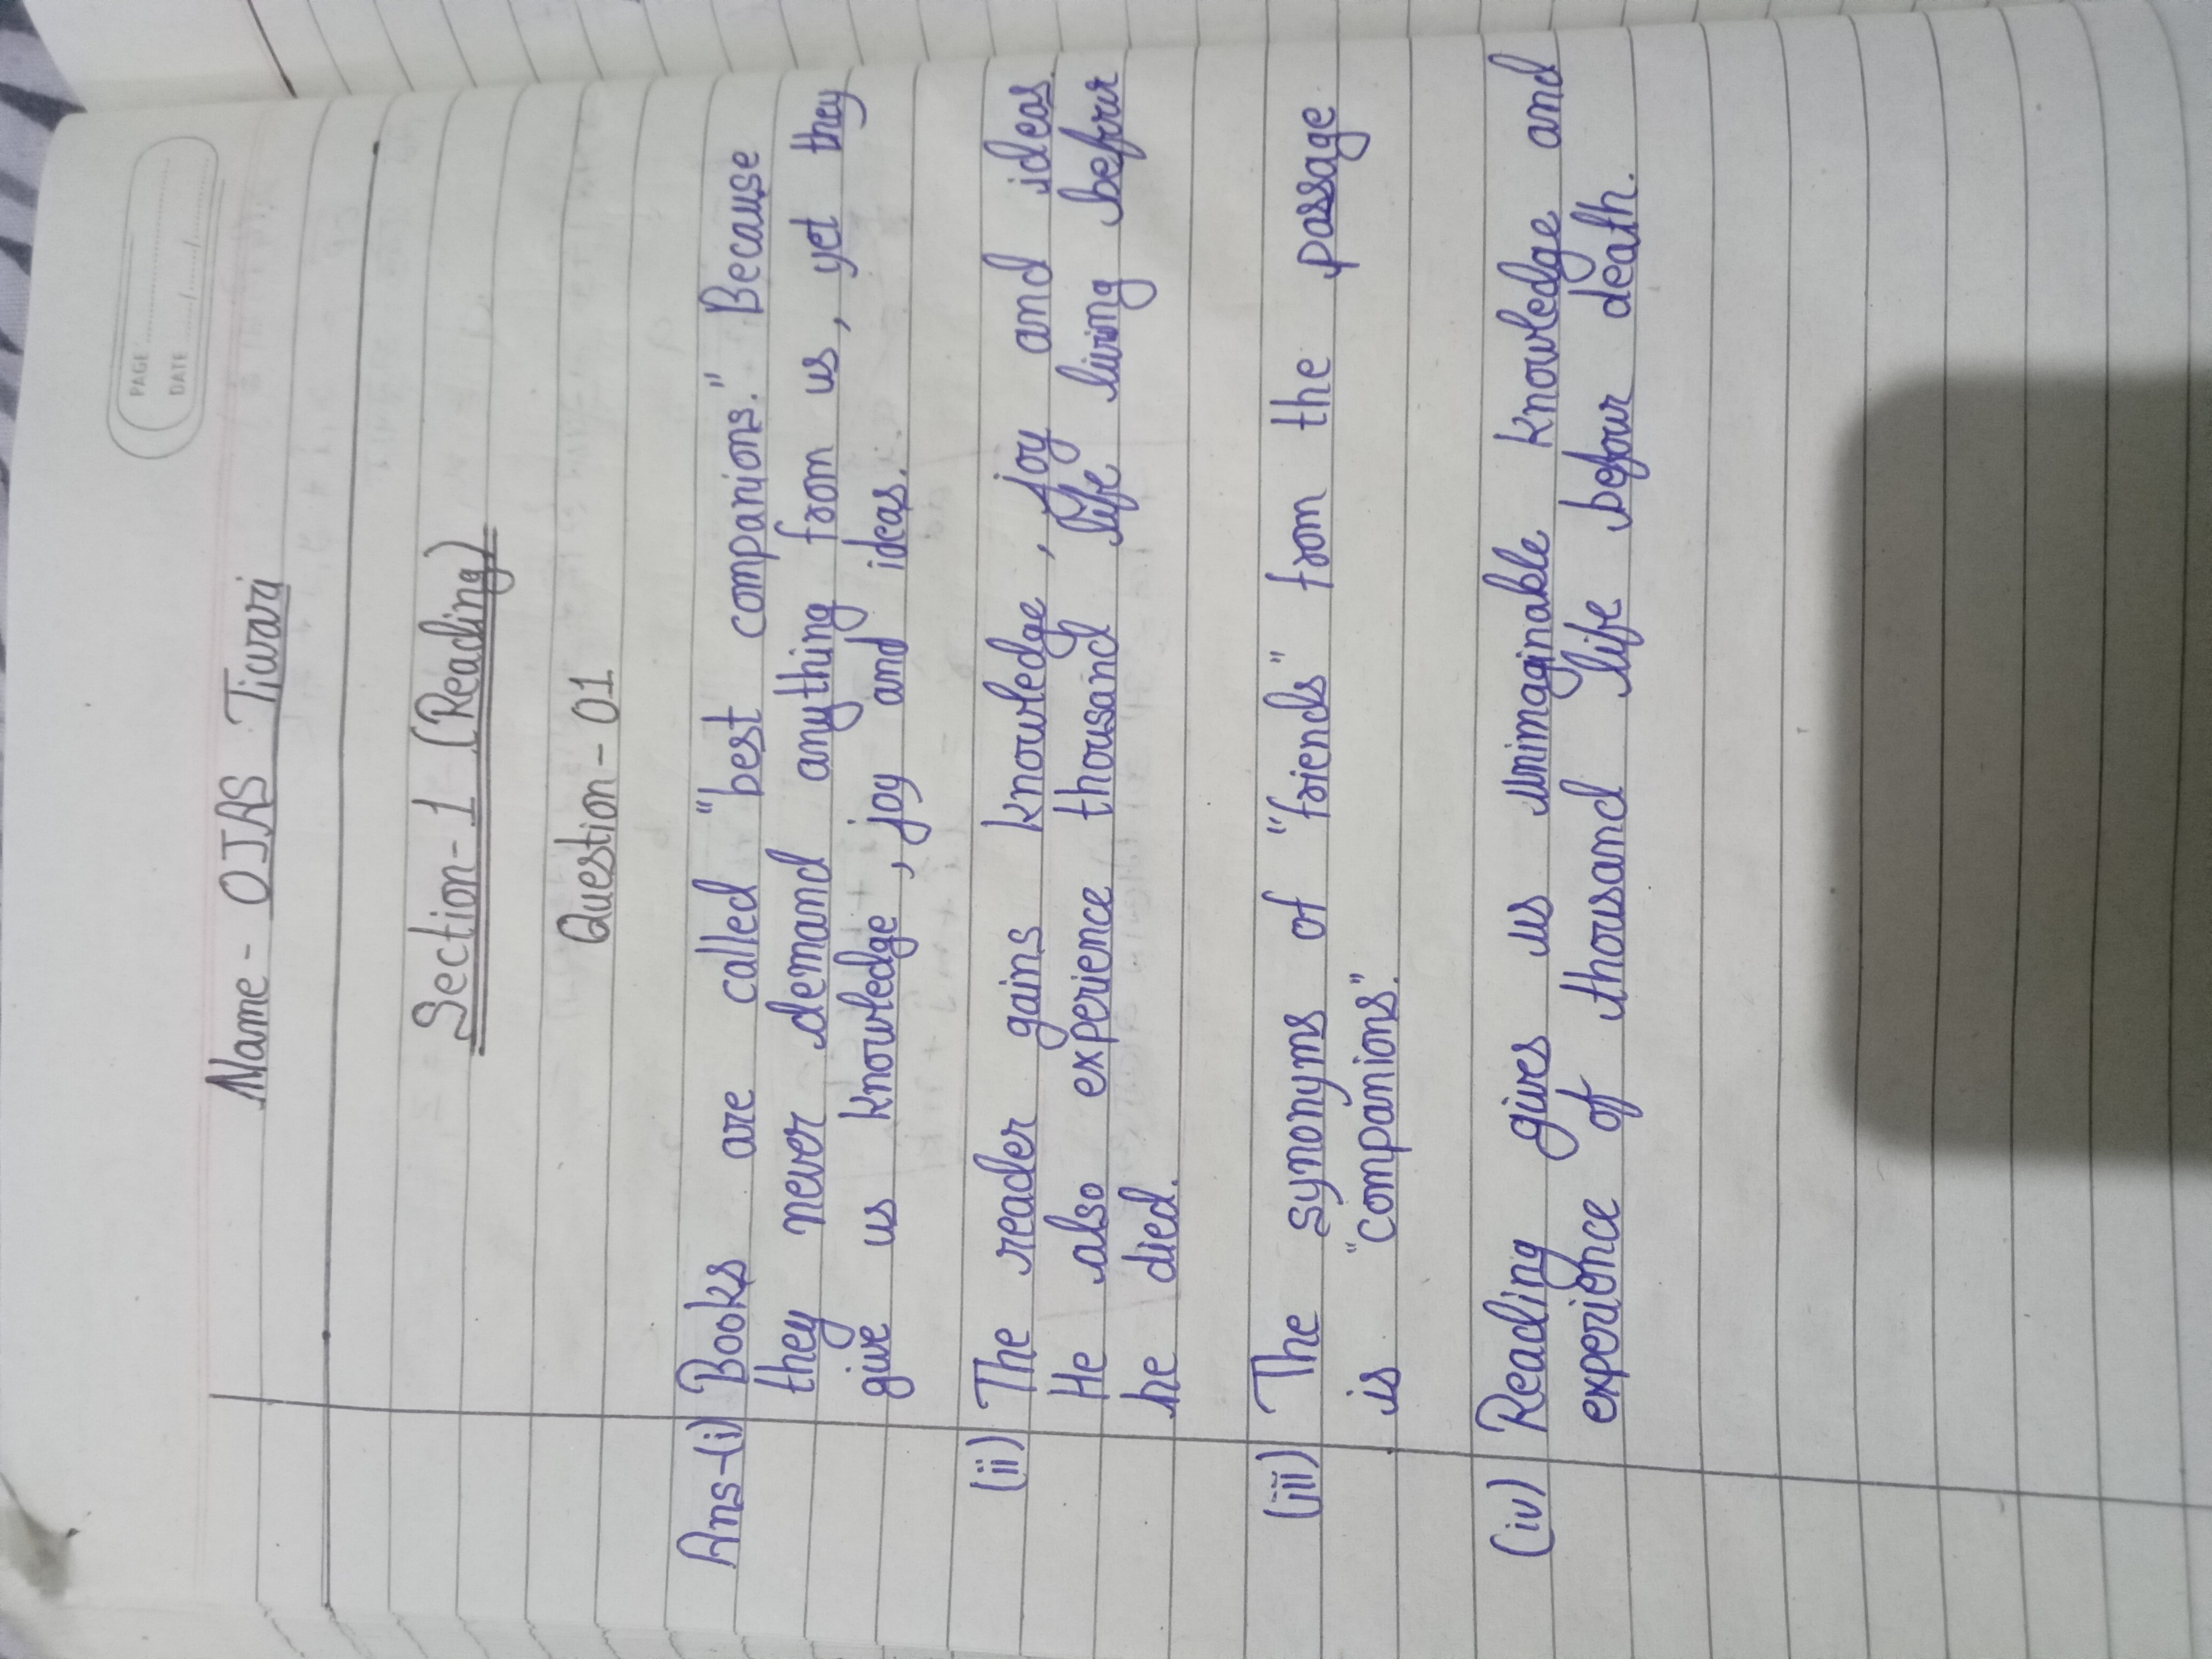 PAGE
DATE
Name - OJAS Tiwari
Section-1 (Reading)
Question - 01
Ans-(i) Books are called "best companions." Because
they never demand anything from us, yet they
give us knowledge, joy and ideas.
(ii) The reader gains knowledge, joy and ideas.
He also experience thousand life living befour
he died.
(iii) The synonyms of "friends" from the passage
is "companions".
(iv) Reading gives us unimaginable knowledge and
experience of thousand life befour death.